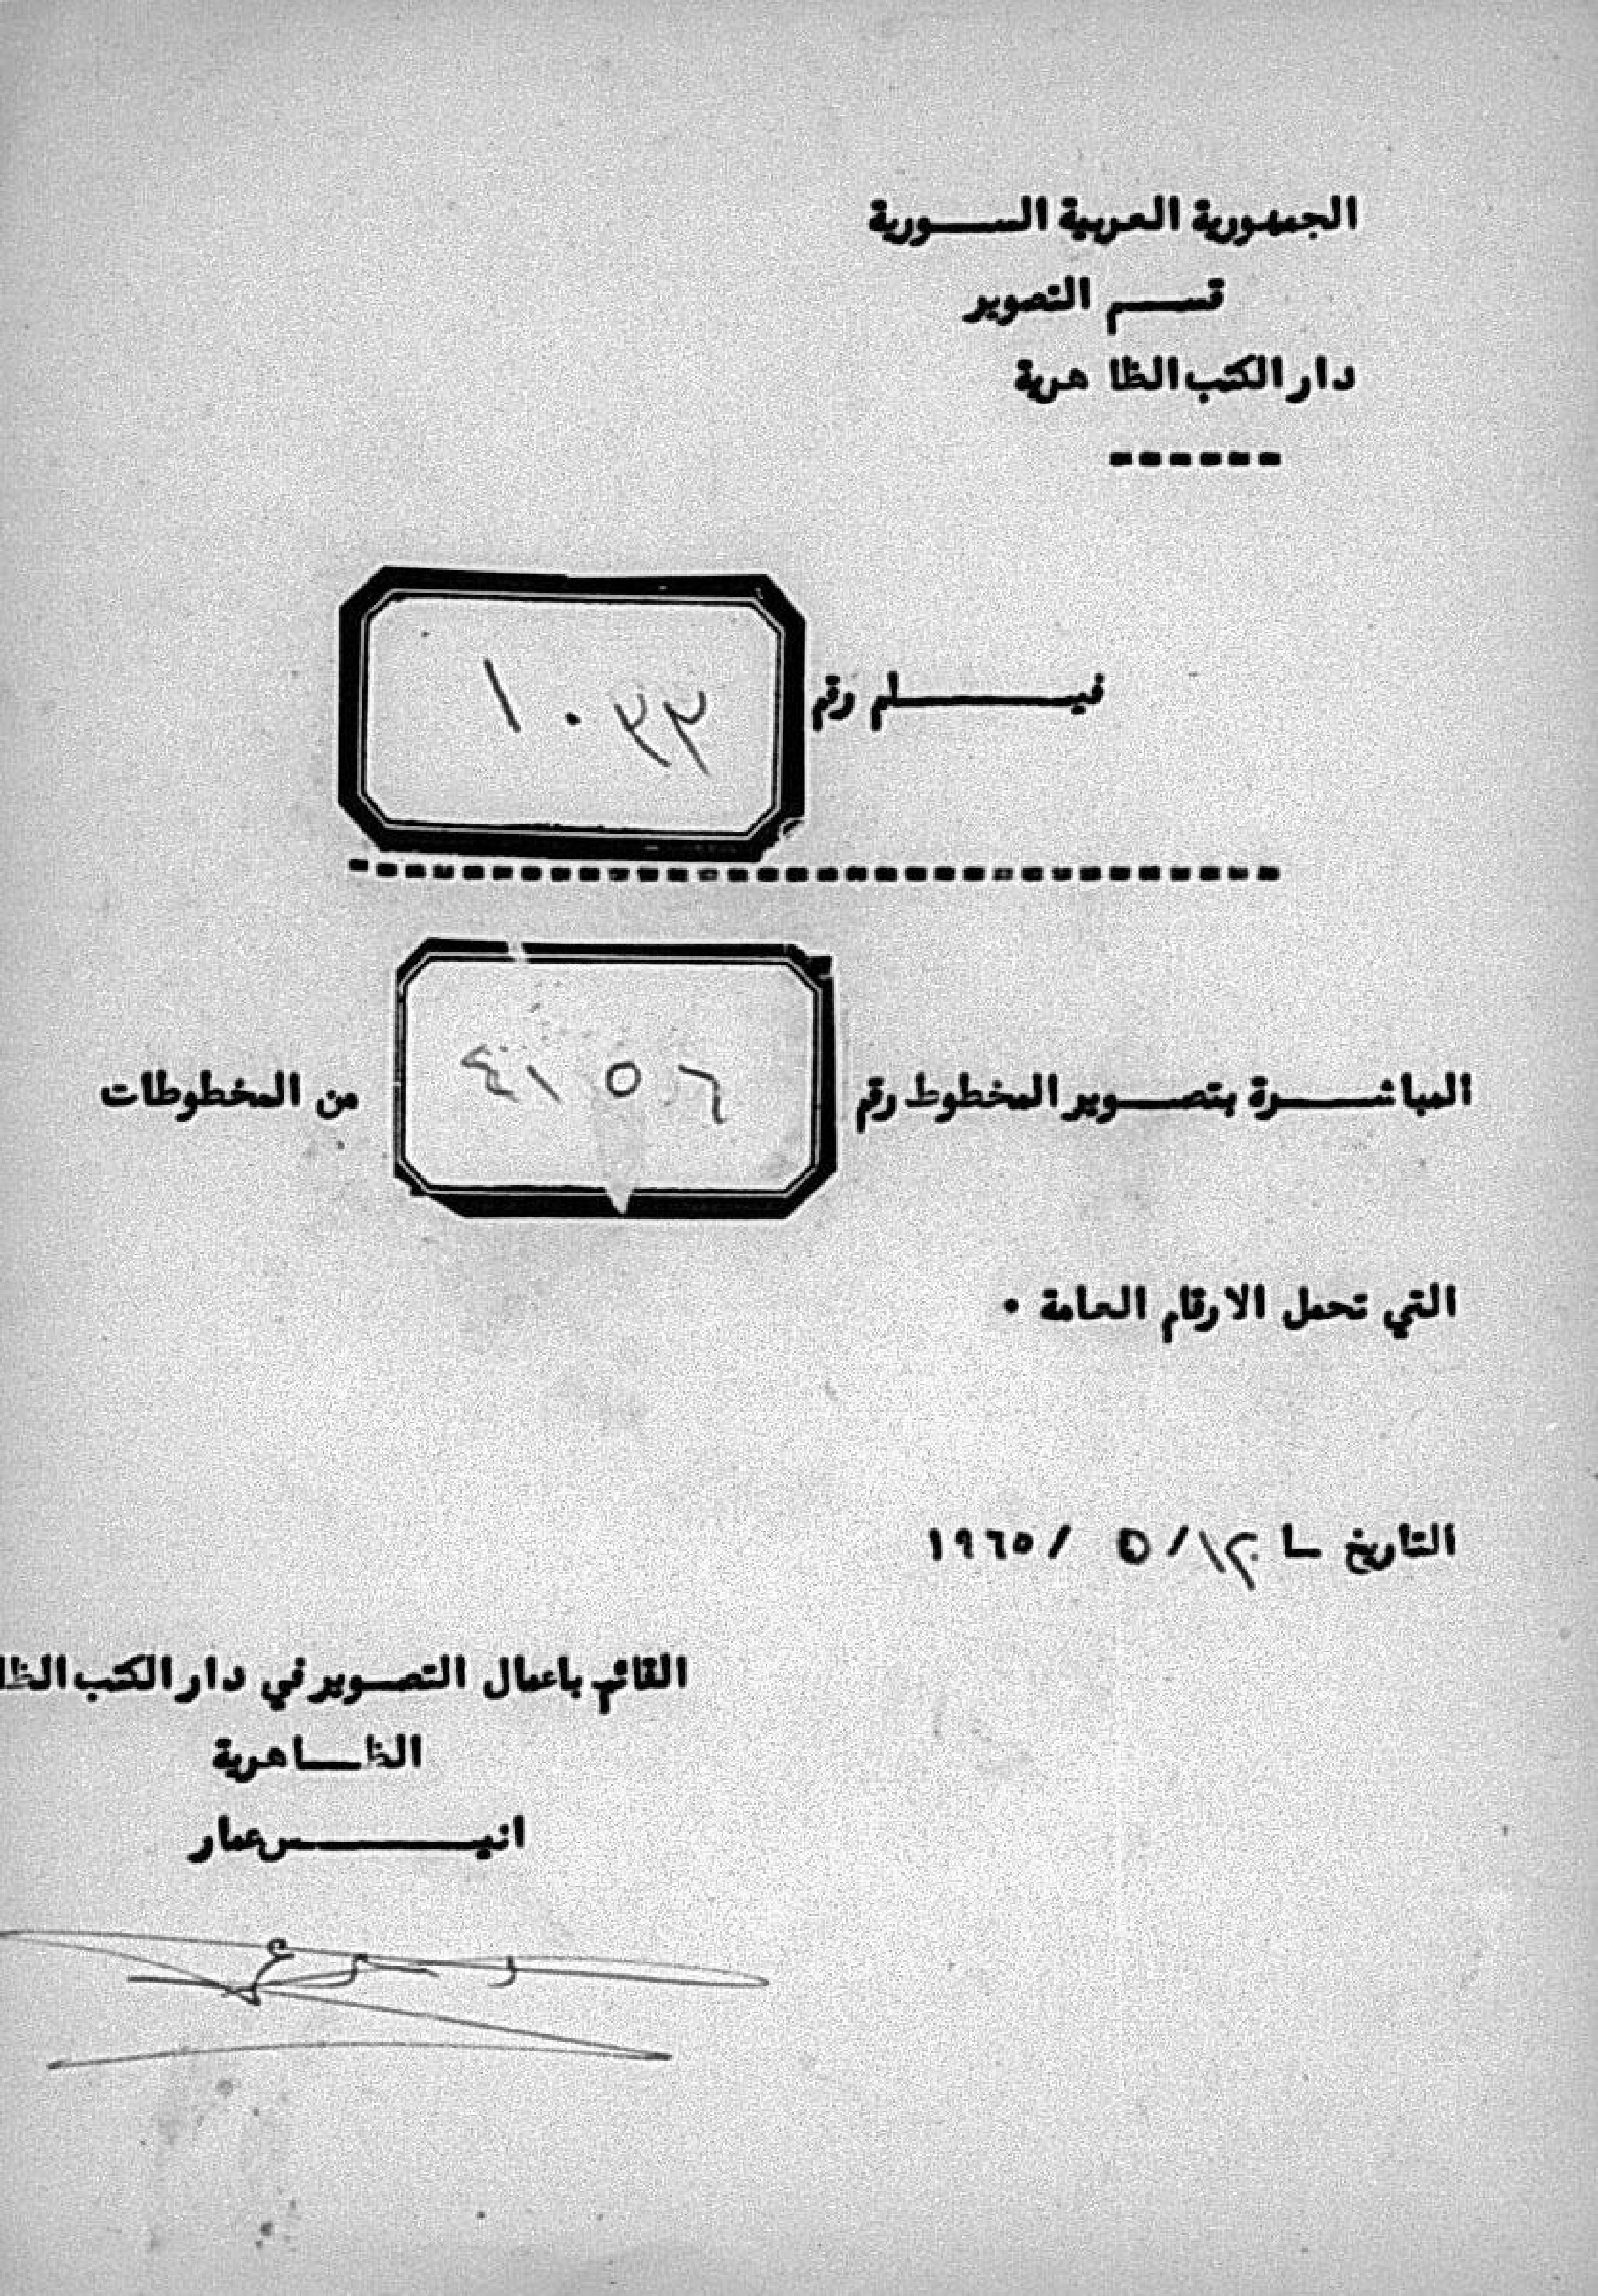 الجمهورية العربية السورية
قسم التصوير
دار الكتب الظا هرية
فيلم رقم ١٠٣٣
المباشرة بتصوير المخطوط رقم ٤١٥٦ من المخطوطات
التي تحمل الارقام العامة ٠
التاريخ ١٢/ ٥ /١٩٦٥
القائم باعمال التصوير في دار الكتب الظا
الظاهرية
انيس عمار